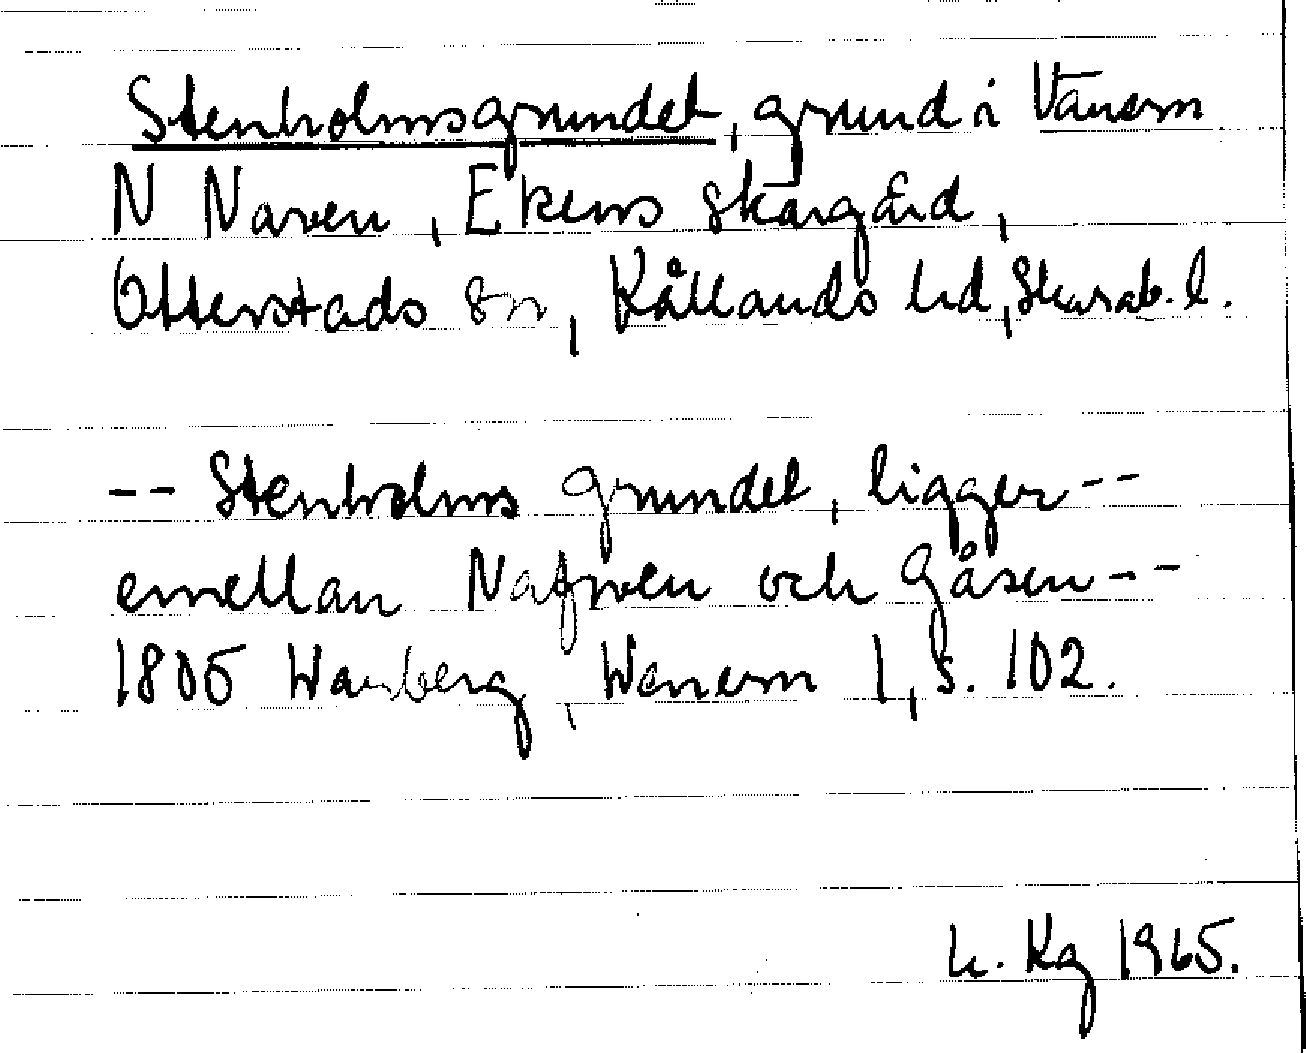 Stenholmsgrundet, grund i Vänern
N Naven, Ekens skärgård,
Otterstads sn, Kållands hd, Skarab. l.
-- Stenholms grundet, ligger --
emellan Nafwen och Gåsen --
1805 Warberg, Wenern 1, s. 102.
h. Kg 1965.